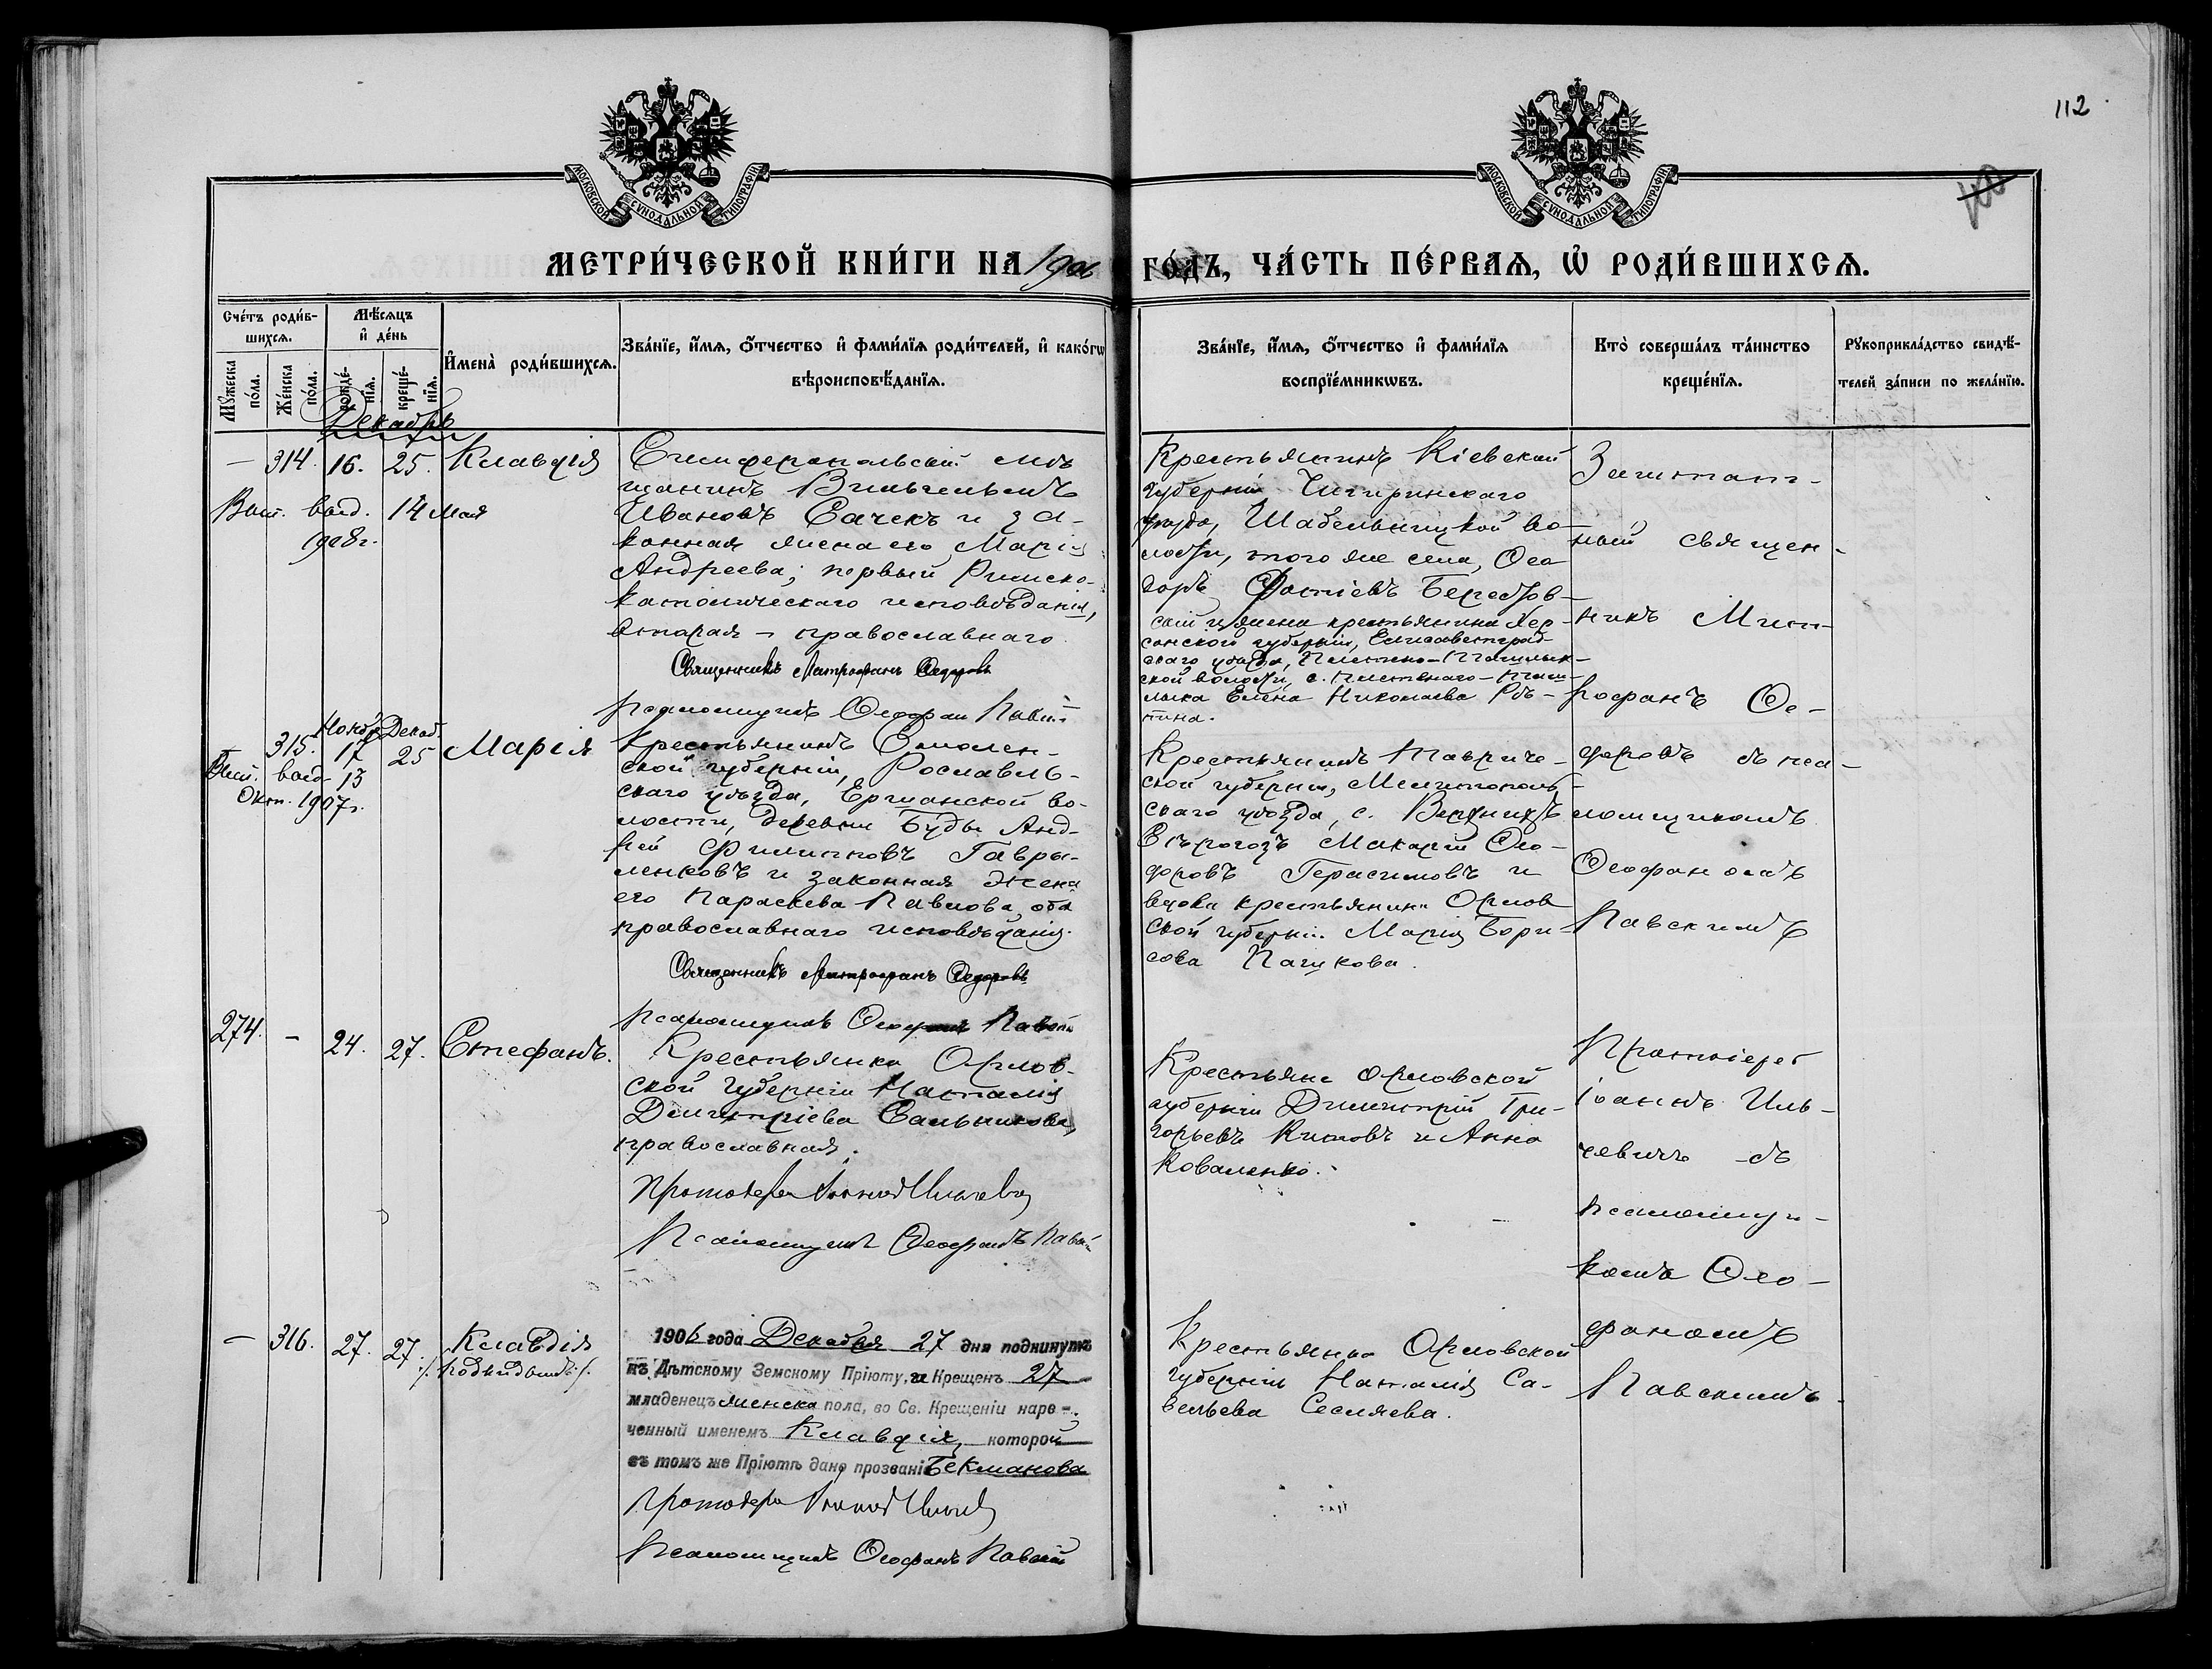 112
МОСКОВСКОЙ СѴНОДАЛЬНОЙ ТИПОГРАФІИ
МОСКОВСКОЙ СѴНОДАЛЬНОЙ ТИПОГРАФІИ
МЕТРИ́ЧЕСКОЙ КНИ́ГИ НА 1906 ГО́ДЪ, ЧА́СТЬ ПЕ́РВАѦ, Ѡ҆ РОДИ́ВШИХСѦ.
Сче́тъ роди́в-
шихсѧ.
Мꙋ́жеска по́ла.
Же́нска по́ла.
Мѣ́сѧцъ
и҆ де́нь
рожде́-
нїѧ.
креще́-
нїѧ.
И҆мена̀ роди́вшихсѧ.
Зва́нїе, и҆́мѧ, ѻ҆́тчество и҆ фами́лїѧ роди́телей, и҆ како́гѡ
вѣроисповѣ́данїѧ.
Зва́нїе, и҆́мѧ, ѻ҆́тчество и҆ фами́лїѧ
воспрїе́мникѡвъ.
Кто̀ соверша́лъ та́инство
креще́нїѧ.
Рꙋкоприкла́дство свидѣ́-
телей за́писи по жела́нїю.
Декабрь
— 314. 16. 25. Клавдія
Вып. выд. 14 Мая
1908 г.
Симферопольскій мѣ
щанинъ Вильгельмъ
Ивановъ Сачекъ и за-
конная жена его Марія
Андреева; первый Римско-
католическаго исповѣданія,
вторая – православнаго.
Священникъ Митрофанъ Ѳедоровъ
Псаломщикъ Ѳеофан Павскій
Крестьянинъ Кіевской
губерніи Чигиринскаго
уѣзда, Шабельницкой во-
лости, того же села,
Фотіевъ
скій и жена крестьянина Хер-
сонской губерніи, Елисаветград-
скаго уѣзда,
ской волости, с.
Елена Николаева
тина.
Заштат-
ный священ-
никъ Мит-
рофанъ Ѳе-
доровъ съ пса-
ломщикомъ
Ѳеофаномъ
Павскимъ
315. Нояб. 17 Декаб. 25 Марія
Вып. выд. 13
Окт. 1907 г.
Крестьянинъ Смолен-
ской губерніи, Рославль-
скаго уѣзда, Ершанской во-
лости, деревни Буды Анд-
рей Филипповъ Гаври-
ленковъ и законная жена
его Параскева Павлова, оба
православнаго исповѣданія.
Священникъ Митрофанъ Ѳедоровъ
Псаломщикъ Ѳеофанъ Павскій
Крестьянинъ Тавриче-
ской губерніи, Мелитополь-
скаго уѣзда, с. Верхнихъ
Сѣрогозъ Макарій Ѳео-
доровъ Герасимовъ и
вдова крестьянина Орлов
ской губерніи Марія Бори-
сова Пацкова.
274. — 24. 27. Стефанъ.
Крестьянка Орлов-
ской губерніи Наталія
Димитріева Сальникова,
православная.
Протоіерей Іоаннъ Ильчевичъ
Псаломщикъ Ѳеофанъ Павскій
Крестьяне Орловской
губерніи Димитрій Гри-
горьевъ Китовъ и Анна
Коваленко.
Протоіерей
Іоаннъ Иль-
чевичъ съ
псаломщи-
комъ Ѳео-
фаномъ
Павскимъ
— 316. 27. 27. Клавдія
/подкидышъ/.
1906 года Декабря 27 дня подкинутъ
къ Дѣтскому Земскому Пріюту, и Крещенъ 27
младенецъ женска пола, во Св. Крещеніи наре-
ченный именемъ Клавдія, которой
въ томъ же Пріютѣ дано прозваніе Бекманова
Протоіерей Іоаннъ Ильчевичъ
Псаломщикъ Ѳеофанъ Павскій
Крестьянка Орловской
губерніи Наталія Са-
вельева Сесляева.